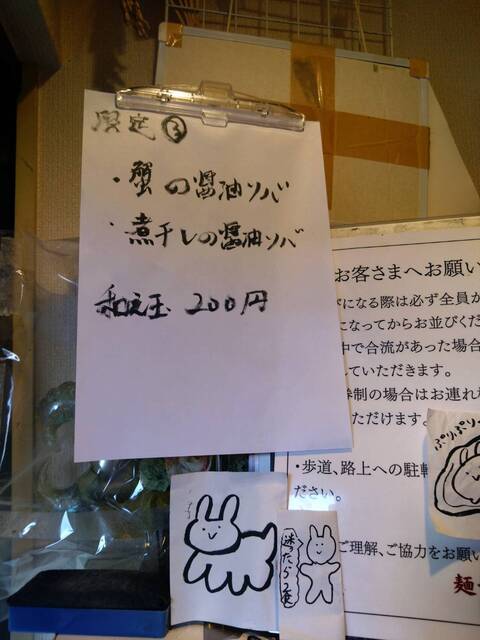 限定 ③
・蟹の醤油ソバ
・煮干しの醤油ソバ
和え玉 200円
お客さまへお願い
になる際は必ず全員が
になってからお並びくだ
中で合流があった場合
していただきます。
制の場合はお連れ
ただけます。
・歩道、路上への駐
ださい。
ご理解、ご協力をお願い
麺
ぷりぷり
迷ったらコレ